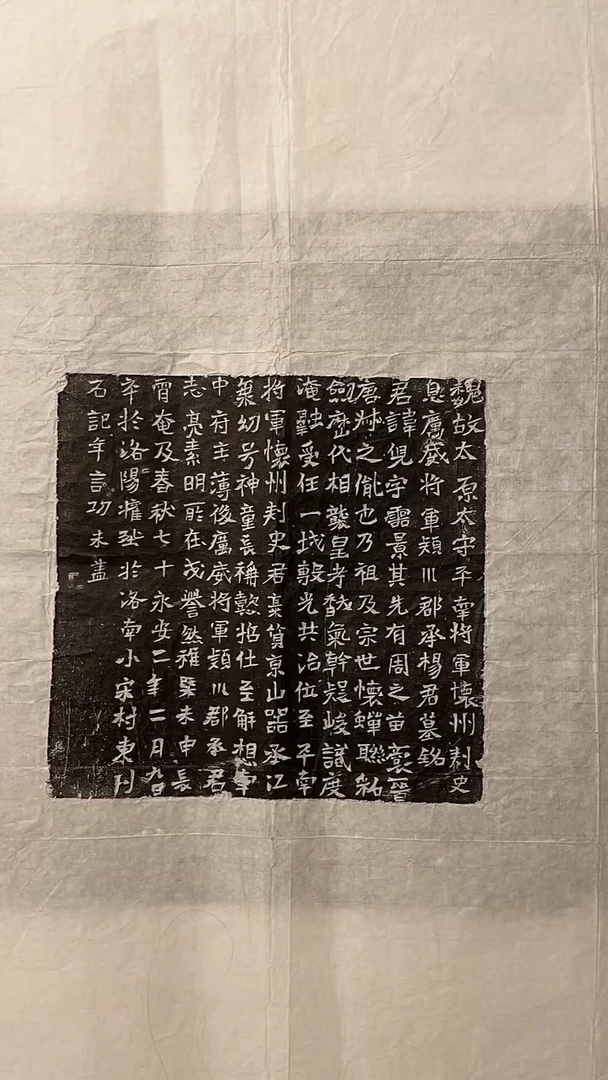 魏故太原太守平南將軍懷州刺史
息廣威將軍潁川郡承楊君墓銘
君諱倪字韶景其先有周之苗裔晉
唐州之胤也乃祖及宗世懷蟬聯紹
歷代相襲皇考 氣幹疑峻識度
淹融受任一城 光共治位至平南
將軍懷州刺史君稟質京山器承江
幼号神童長稱懿招仕至解想事
中府主薄後廣威將軍潁川郡承君
志亮素明所在茂譽然雅 未申長
宵奄及春秋七十永安二年二月九日
卒於洛陽 於洛南小宋村東刊
石記年言功未盖